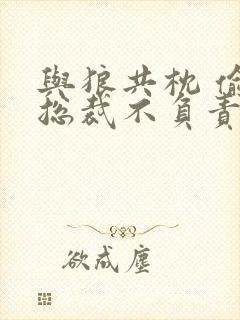 與狼共枕 偷
総裁不負責
欲成塵